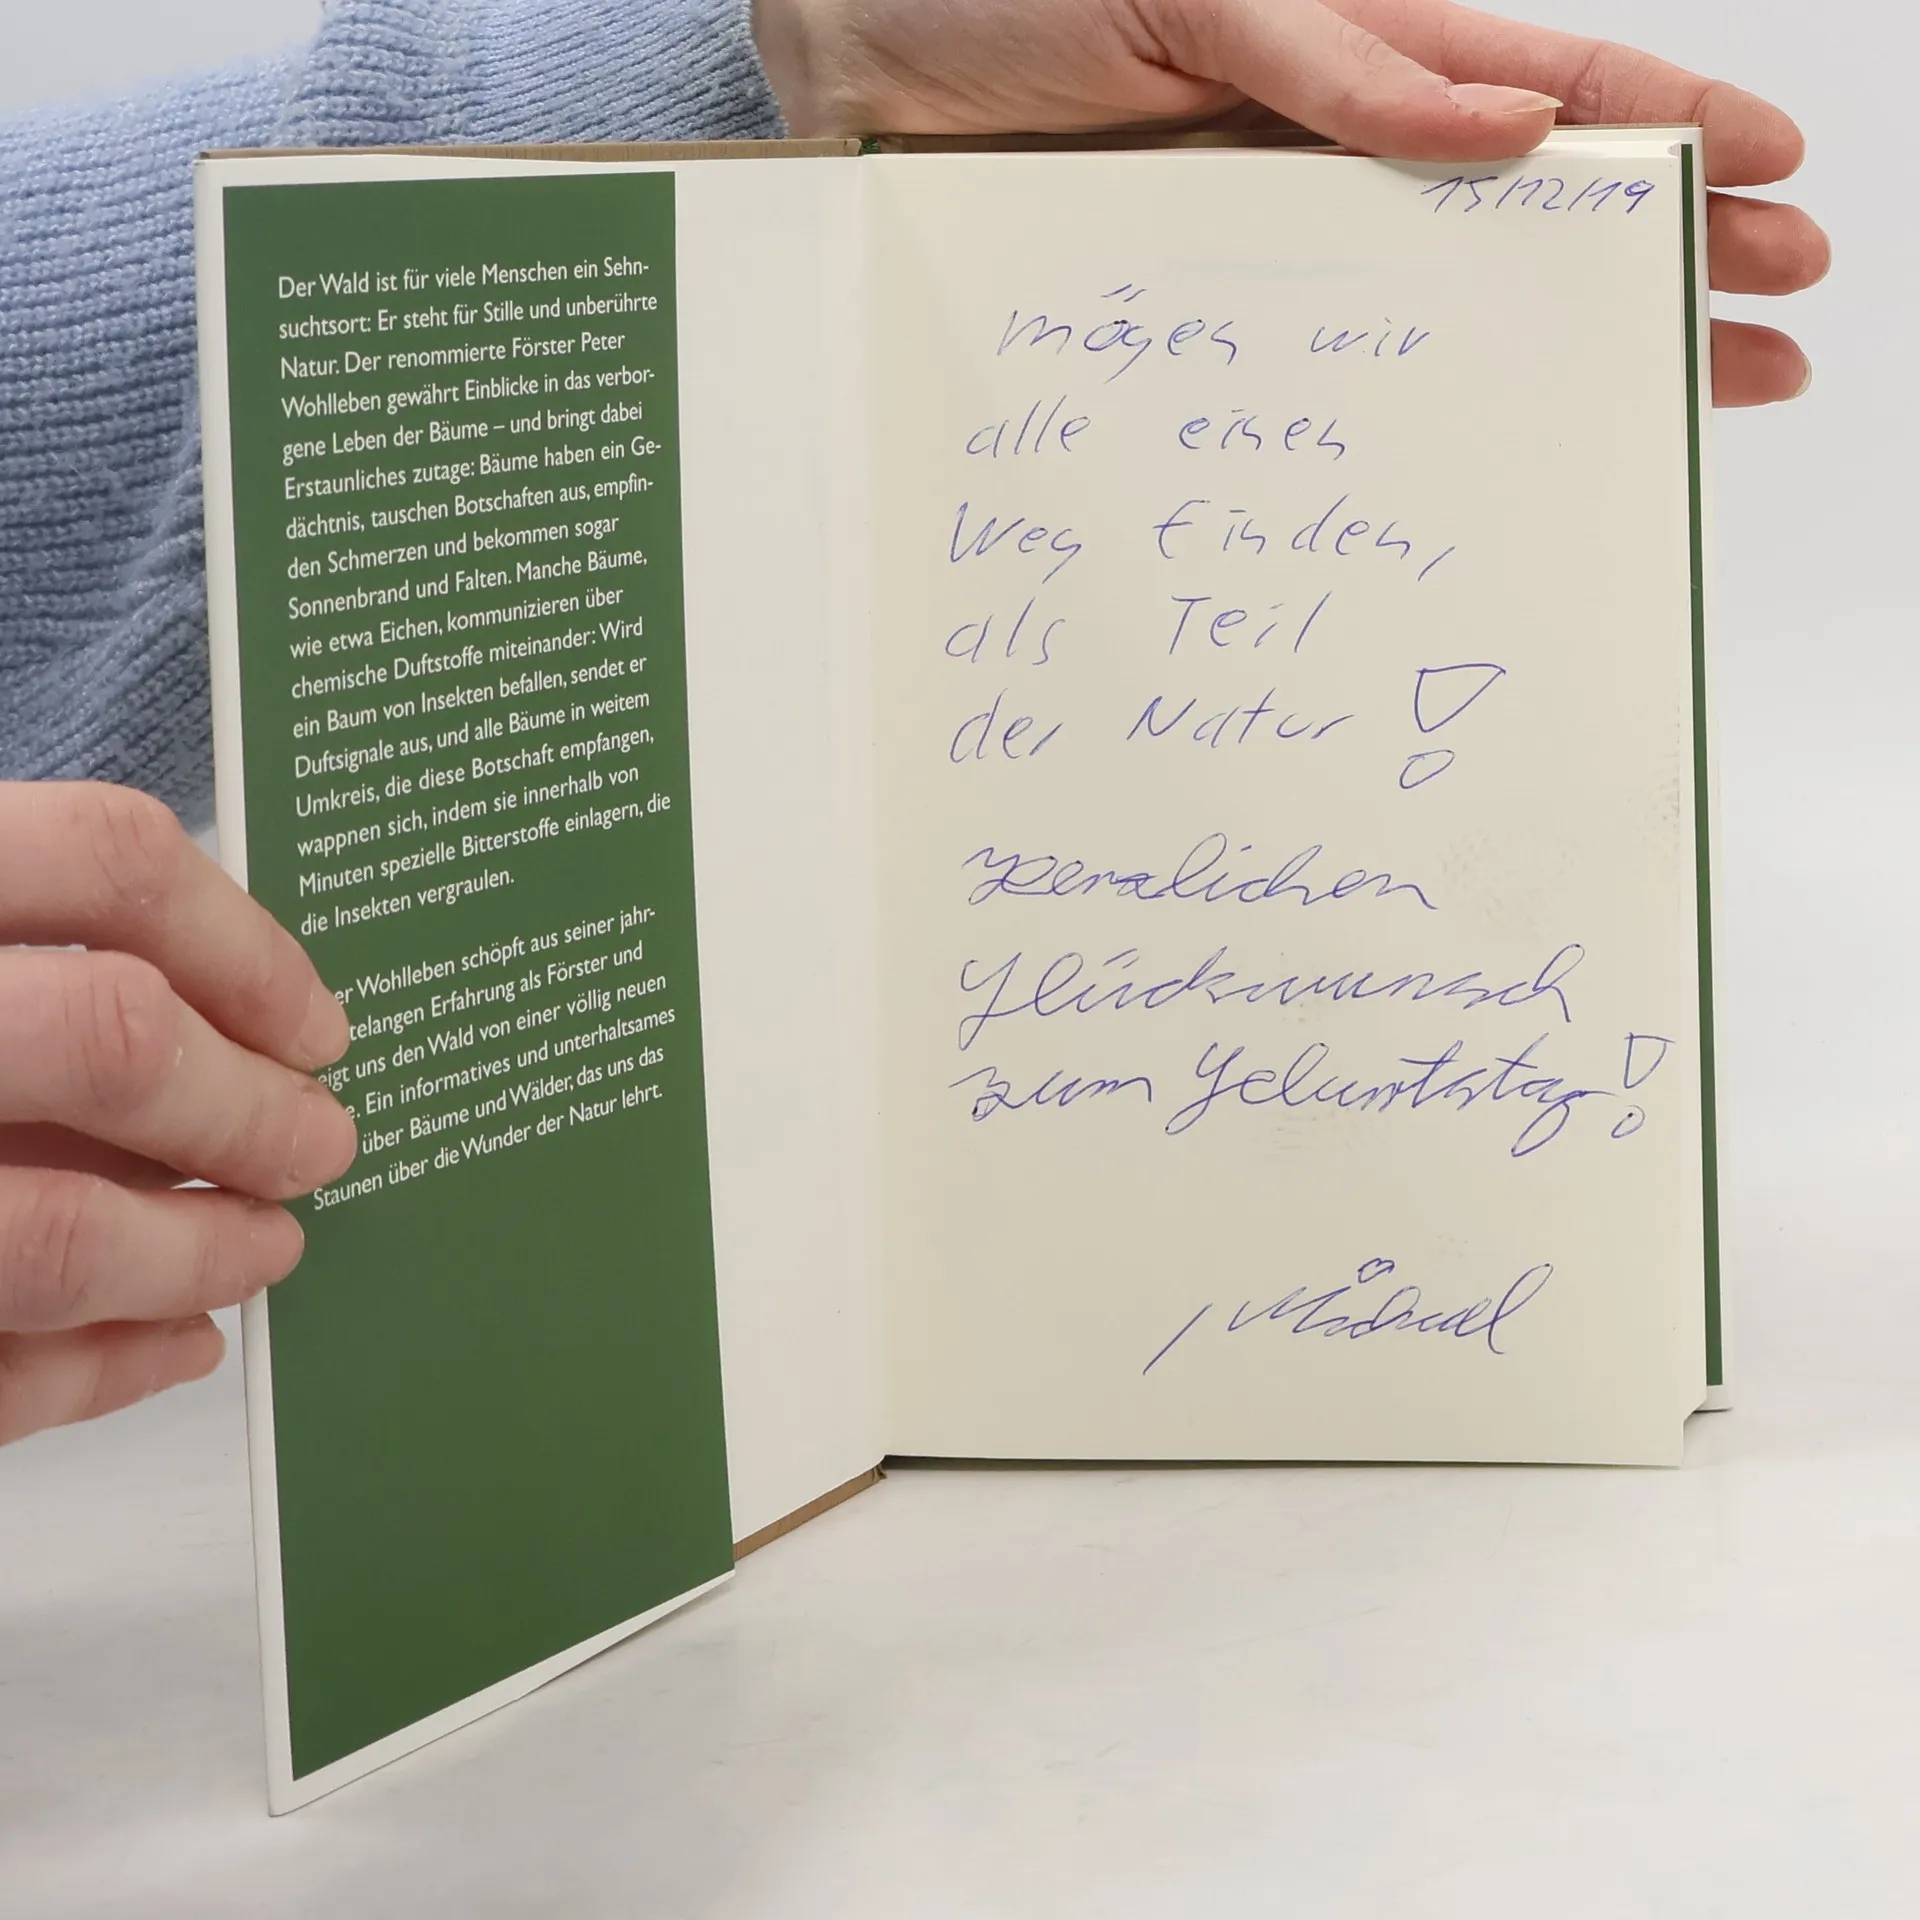 Der Wald ist für viele Menschen ein Sehn-
suchtsort: Er steht für Stille und unberührte
Natur. Der renommierte Förster Peter
Wohlleben gewährt Einblicke in das verbor-
gene Leben der Bäume – und bringt dabei
Erstaunliches zutage: Bäume haben ein Ge-
dächtnis, tauschen Botschaften aus, empfin-
den Schmerzen und bekommen sogar
Sonnenbrand und Falten. Manche Bäume,
wie etwa Eichen, kommunizieren über
chemische Duftstoffe miteinander: Wird
ein Baum von Insekten befallen, sendet er
Duftsignale aus, und alle Bäume in weitem
Umkreis, die diese Botschaft empfangen,
wappnen sich, indem sie innerhalb von
Minuten spezielle Bitterstoffe einlagern, die
die Insekten vergraulen.
er Wohlleben schöpft aus seiner jahr-
telangen Erfahrung als Förster und
eigt uns den Wald von einer völlig neuen
e. Ein informatives und unterhaltsames
über Bäume und Wälder, das uns das
Staunen über die Wunder der Natur lehrt.
15/12/19
mögen wir
alle einen
Weg finden,
als Teil
der Natur!
Herzlichen
Glückwunsch
zum Geburtstag!
, Michael